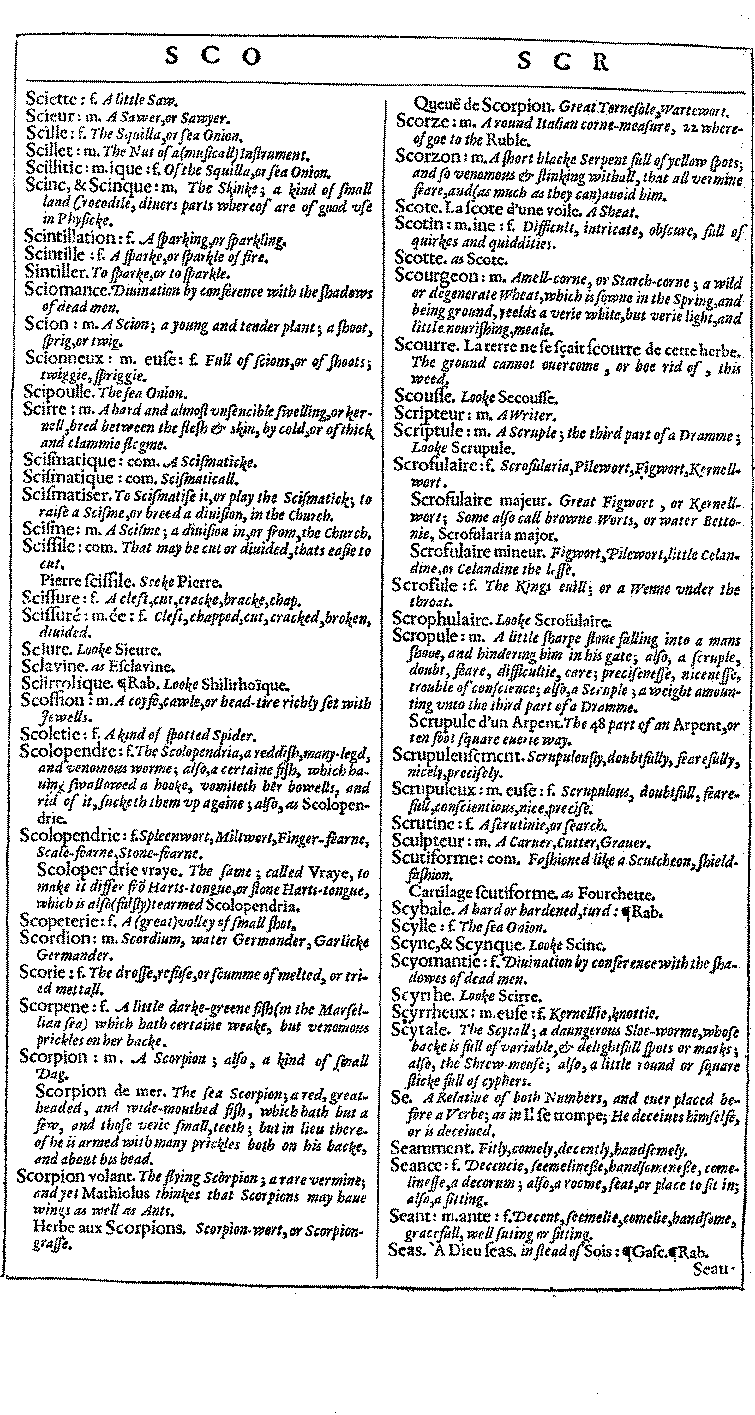 S C O
Sciette : f. A little Saw.
Scieur : m. A Sawer, or Sawyer.
Scille : f. The Squilla, or sea Onion.
Scillet : m. The Nut of a (musicall) Instrument.
Scillitic : m. ique : f. Of the Squilla, or sea Onion.
Scinc, & Scinque : m. The Skinke; a kind of small
land Crocodile, diuers parts whereof are of good vse
in Physicke.
Scintillation : f. A sparking, or sparkling.
Scintille : f. A sparke, or sparkle of fire.
Sintiller. To sparke, or to sparkle.
Sciomance. Diuination by conference with the shadows
of dead men.
Scion : m. A Scion; a young and tender plant; a shoot,
sprig, or twig.
Scionneux : m. euse : f. Full of scions, or of shoots;
twiggie, spriggie.
Scipoulle. The sea Onion.
Scirre : m. A hard and almost vnsencible swelling, or ker-
nell, bred between the flesh & skin, by cold, or of thick
and clammie flegme.
Scismatique : com. A Scismaticke.
Scismatique : com. Scismaticall.
Scismatiser. To Scismatise it, or play the Scismatick; to
raise a Scisme, or breed a diuision, in the Church.
Scisme : m. A Scisme; a diuision in, or from, the Church.
Scissile : com. That may be cut or diuided, thats easie to
cut.
Pierre scissile. Seeke Pierre.
Scissure : f. A cleft, cut, cracke, bracke, chap.
Scissuré : m. ée : f. Cleft, chapped, cut, cracked, broken,
diuided.
Sciure. Looke Sieure.
Sclavine. as Esclavine.
Sclirrolique. ¶Rab. Looke Shilirhoïque.
Scoffion : m. A coyfe, cawle, or head-tire richly set with
Jewells.
Scoletie : f. A kind of spotted Spider.
Scolopendre : f. The Scolopendria, a reddish, many-legd,
and venomous worme; also, a certaine fish, which ha-
uing swallowed a hooke, vomiteth her bowells, and
rid of it, sucketh them vp againe; also, as Scolopen-
drie.
Scolopendrie : f. Spleenwort, Miltwort, Finger-fearne,
Scale-fearne, Stone-fearne.
Scolopendrie vraye. The same; called Vraye, to
make it differ frõ Harts-tongue, or stone Harts-tongue,
which is also (falsly) tearmed Scolopendria.
Scopeterie : f. A (great) volley of small shot.
Scordion : m. Scordium, water Germander, Garlicke
Germander.
Scorie : f. The drosse, refuse, or scumme of melted, or tri-
ed mettall.
Scorpene : f. A little darke-greene fish (in the Marsel-
lian sea) which hath certaine weake, but venomous
prickles on her backe.
Scorpion : m. A Scorpion; also, a kind of small
Dag.
Scorpion de mer. The sea Scorpion; a red, great-
headed, and wide-mouthed fish, which hath but a
few, and those verie small, teeth; but in lieu there-
of he is armed with many prickles both on his backe,
and about his head.
Scorpion volant. The flying Scorpion; a rare vermine;
and yet Mathiolus thinkes that Scorpions may haue
wings as well as Ants.
Herbe aux Scorpions. Scorpion-wort, or Scorpion-
grasse.
S C R
Queuë de Scorpion. Great Tornesole, Wartewort.
Scorze : m. A round Italian corne-measure, 22 where-
of goe to the Ruble.
Scorzon : m. A short blacke Serpent full of yellow spots;
and so venomous & stinking withall, that all vermine
feare, and (as much as they can) auoid him.
Scote. La scote d'une voile. A Sheat.
Scotin : m. ine : f. Difficult, intricate, obscure, full of
quirkes and quiddities.
Scotte. as Scote.
Scourgeon : m. Amell-corne, or Starch-corne; a wild
or degenerate Wheat, which is sowne in the Spring, and
being ground, yeelds a verie white, but verie light, and
little nourishing, meale.
Scourre. La terre ne se sçait scourre de cette herbe.
The ground cannot ouercome, or bee rid of, this
weed.
Scousse. Looke Secousse.
Scripteur : m. A Writer.
Scriptule : m. A Scruple; the third part of a Dramme;
Looke Scrupule.
Scrofulaire : f. Scrofularia, Pilewort, Figwort, Kernell-
wort.
Scrofulaire majeur. Great Figwort, or Kernell-
wort; Some also call browne Worts, or water Betto-
nie, Scrofularia major.
Scrofulaire mineur. Figwort, Pilewort, little Celan-
dine, or Celandine the lesse.
Scrofule : f. The Kings euill; or a Wenne vnder the
throat.
Scrophulaire. Looke Scrofulaire.
Scropule : m. A little sharpe stone falling into a mans
shooe, and hindering him in his gate; also, a scruple,
doubt, feare, difficultie, care; precisenesse, nicenesse,
trouble of conscience; also, a Scruple; a weight amoun-
ting vnto the third part of a Dramme.
Scrupule d'un Arpent. The 48 part of an Arpent, or
ten foot square euerie way.
Scrupuleusement. Scrupulously, doubtfully, fearefully,
nicely, precisely.
Scrupuleux : m. euse : f. Scrupulous, doubtfull, feare-
full, conscientious, nice, precise.
Scrutine : f. A scrutinie, or search.
Sculpteur : m. A Caruer, Cutter, Grauer.
Scutiforme : com. Fashioned like a Scutcheon, shield-
fashion.
Cartilage scutiforme. as Fourchette.
Scybale. A hard or hardened, turd : ¶Rab.
Scylle : f. The sea Onion.
Scync, & Scynque. Looke Scinc.
Scyomantie : f. Diuination by conference with the sha-
dowes of dead men.
Scyrrhe. Looke Scirre.
Scyrrheux : m. euse : f. Kernellie, knottie.
Scytale. The Scytall; a daungerous Sloe-worme, whose
backe is full of variable, & delightfull spots or marks;
also, the Shrew-mouse; also, a little round or square
sticke full of cyphers.
Se. A Relatiue of both Numbers, and euer placed be-
fore a Verbe; as in Il se trompe; He deceiues himselfe,
or is deceiued.
Seamment. Fitly, comely, decently, handsomely.
Seance : f. Decencie, seemelinesse, handsomenesse, come-
linesse, a decorum; also, a roome, seat, or place to sit in;
also, a sitting.
Seant : m. ante : f. Decent, seemelie, comelie, handsome,
gracefull, well suting or sitting.
Seas. À Dieu seas. in stead of Sois : ¶Gasc. ¶Rab.
Seau-